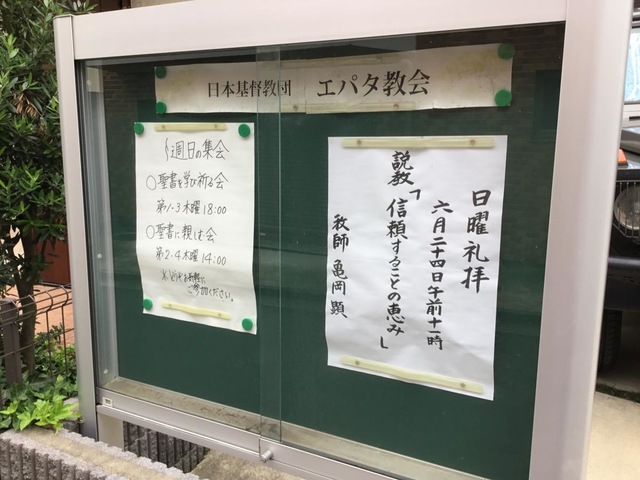 日本基督教団 エパタ教会
週日の集会
○聖書を学び祈る会
第1・3木曜 18:00
○聖書に親しむ会
第2・4木曜 14:00
※どうぞお気軽に
ご参加ください。
日曜礼拝
六月二十四日午前十一時
説教「信頼することの恵み」
教師 亀岡顕